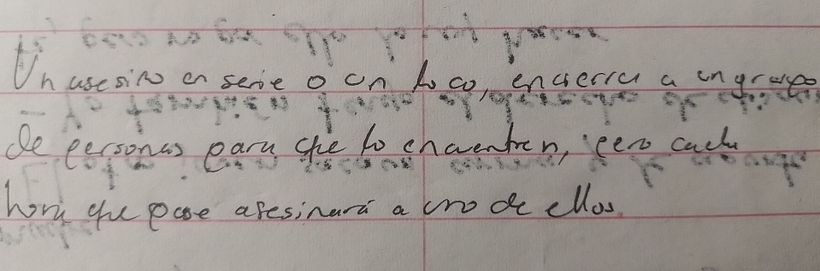 Un asesino en serie o un loco, encierra a un grupo
de personas para que lo encuentren, pero cada
hora que pase asesinará a uno de ellos.